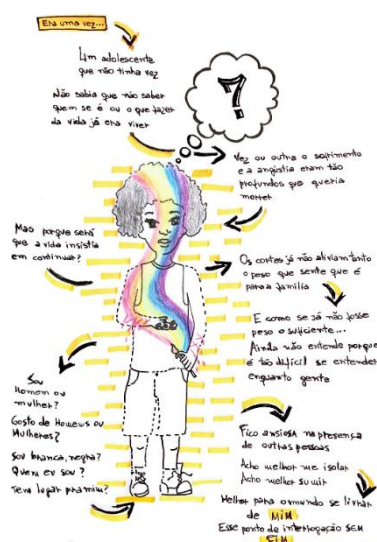 Era uma vez...
Um adolescente
que não tinha vez
Não sabia que não saber
quem se é ou o que fazer
da vida já era viver
?
Vez ou outra o sofrimento
e a angústia eram tão
profundos que queria
morrer
Mas porque será
que a vida insistia
em continuar?
Os cortes já não aliviam tanto
o peso que sente que é
para a família
E como se já não fosse
peso o suficiente...
Ainda não entende porque
é tão difícil se entender
enquanto gente
Sou
Homem ou
mulher?
Gosto de Homens ou
Mulheres?
Sou branca, negra?
Quem eu sou?
Tem lugar pra mim?
Fico ansiosA na presença
de outras pessoas
Acho melhor me isolar
Acho melhor sumir
Melhor para o mundo se livrar
de MIM
Esse ponto de interrogação SEM
FIM